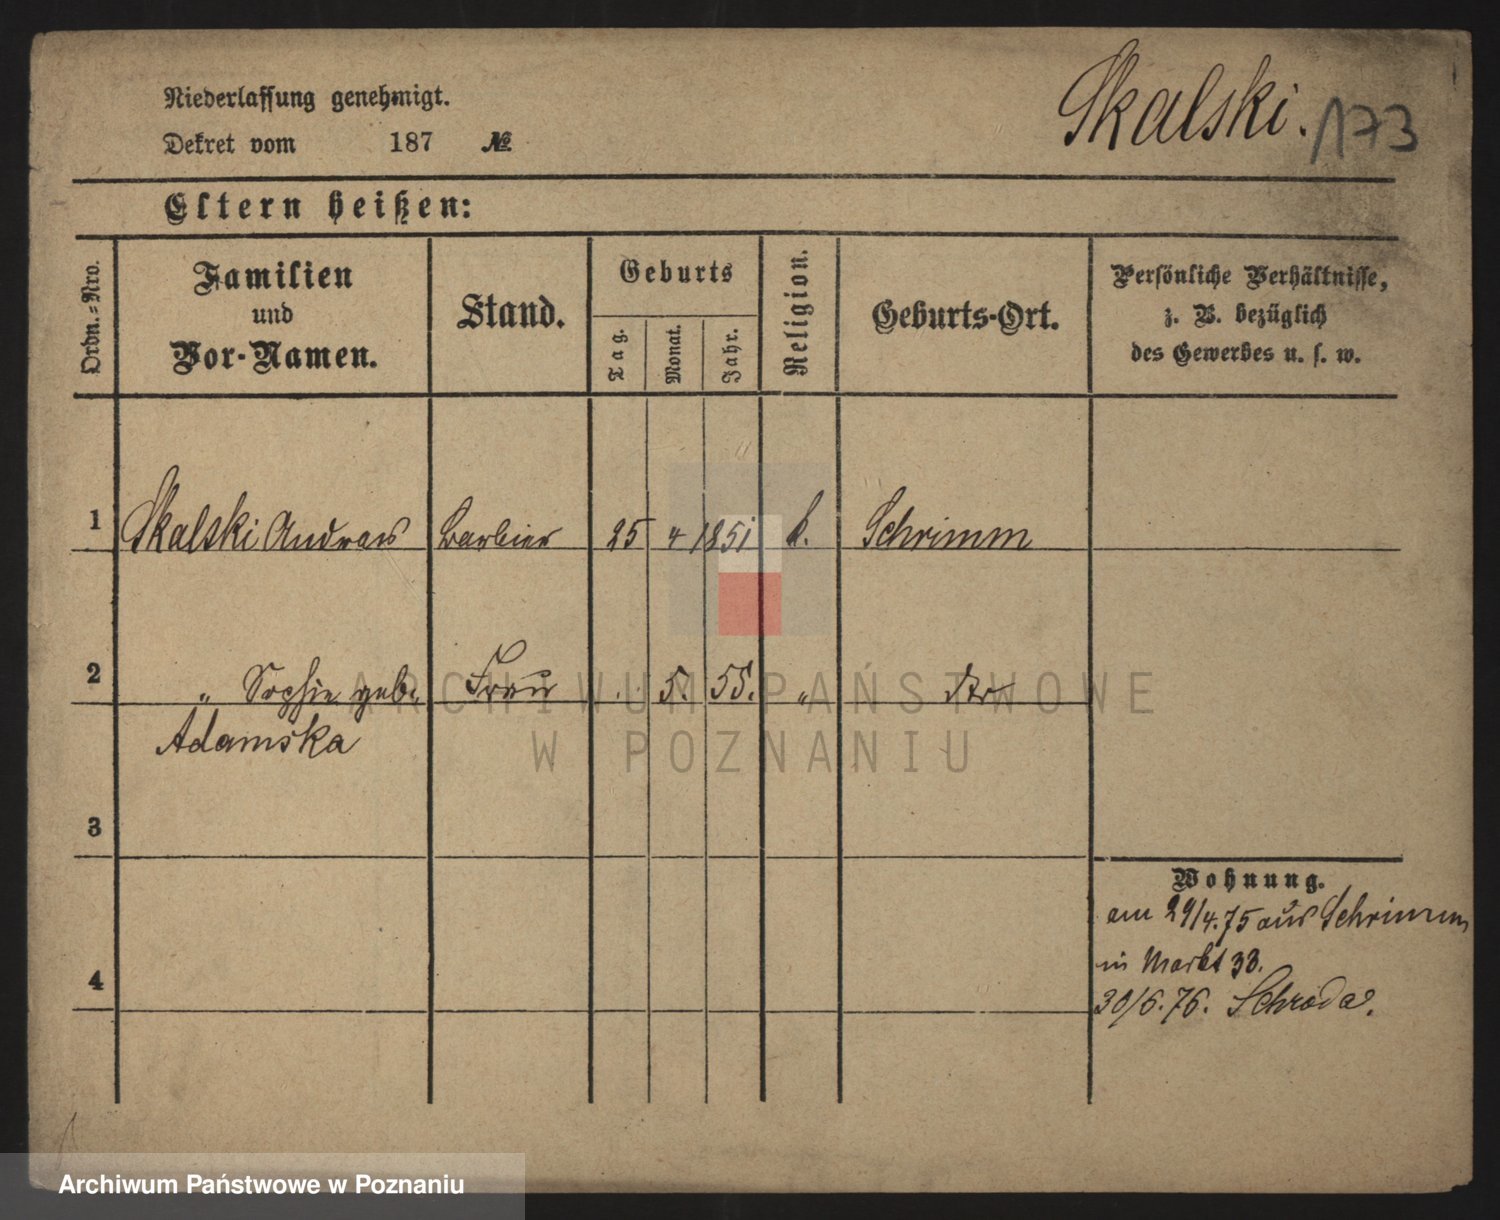 Skalski. 173
Niederlassung genehmigt.
Dekret vom 187 №
Eltern heißen:
Ordn.-Nro.
Familien
und
Vor-Namen.
Stand.
Geburts
Tag.
Monat.
Jahr.
Religion.
Geburts-Ort.
Persönliche Verhältnisse,
z. B. bezüglich
des Gewerbes u. s. w.
1 Skalski Andreas Barbier 25 4 1851 k. Schrimm
2 " Sophie geb. Frau 5. 55. "
Adamska
3
4
Wohnung.
am 29/4.75 aus Schrimm
in Markt 33.
30/6.76. Schroda.
ARCHIWUM PAŃSTWOWE
W POZNANIU
Archiwum Państwowe w Poznaniu